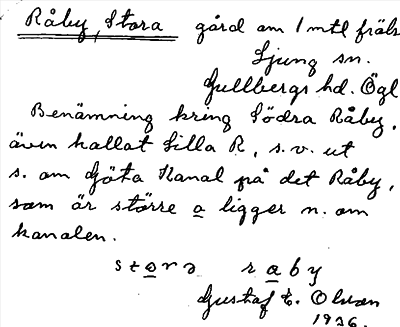 Råby, Stora gård om 1 mtl fräls
Ljung sn.
Gullbergs hd. Ögl
Benämning kring Södra Råby,
även kallat Lilla R, s.v. ut
s. om Göta Kanal på det Råby,
som är större o ligger n. om
kanalen.
raby
Gustaf E. Olsson
1936.